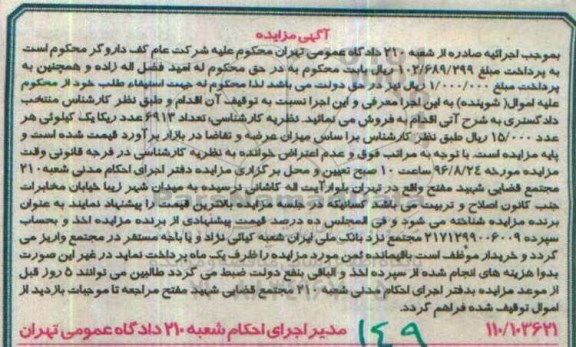 آگهی مزایده
بموجب اجرائیه صادره از شعبه ۲۱۰ دادگاه عمومی تهران محکوم علیه شرکت عام کف داروگر محکوم است
به پرداخت مبلغ ۱۰۲/۶۸۹/۲۹۹ ریال بابت محکوم به در حق محکوم له امید فضل اله زاده و همچنین به
پرداخت مبلغ ۱/۰۰۰/۰۰۰ ریال نیز در حق دولت می باشد لذا محکوم له جهت استیفاء طلب خود از محکوم
علیه اموال( شوینده) به این اجرا معرفی و این اجرا نسبت به توقیف آن اقدام و طبق نظر کارشناس منتخب
دادگستری به شرح آتی اقدام به فروش می نمائید. نظریه کارشناسی: تعداد ۶۹۱۳ عدد ریکا یک کیلوئی هر
عدد ۱۵/۰۰۰ ریال طبق نظر کارشناس براساس میزان عرضه و تقاضا در بازار برآورد قیمت شده است و
پایه مزایده است. با توجه به مراتب فوق و عدم اعتراض خوانده به نظریه کارشناسی در فرجه قانونی وقت
مزایده مورخه ۹۶/۸/۲۴ ساعت ۱۰ صبح تعیین و محل برگزاری مزایده دفتر اجرای احکام مدنی شعبه ۲۱۰
مجتمع قضایی شهید مفتح واقع در تهران بلوار آیت اله کاشانی نرسیده به میدان شهر زیبا خیابان مخابرات
جنب کانون اصلاح و تربیت می باشد کسانیکه در جلسه مزایده بالاترین قیمت را پیشنهاد نمایند به عنوان
برنده مزایده شناخته می شود و فی المجلس ده درصد قیمت پیشنهادی از برنده مزایده اخذ و بحساب
سپرده ۲۱۷۱۲۹۹۰۰۶۰۰۹ مجتمع نزد بانک ملی ایران شعبه کیائی نژاد و یا باجه مستقر در مجتمع واریز می
گردد و خریدار موظف است باقیمانده ثمن مورد مزایده را ظرف یک ماه پرداخت نماید در غیر این صورت
بدوا هزینه های انجام شده از سپرده اخذ و الباقی بنفع دولت ضبط می گردد طالبین می توانند ۵ روز قبل
از موعد مزایده بدفتر اجرای احکام مدنی شعبه ۲۱۰ مجتمع قضایی شهید مفتح مراجعه تا موجبات بازدید از
اموال توقیف شده فراهم گردد.
۱۱۰/۱۰۳۶۲۱ ۱۴۹ مدیر اجرای احکام شعبه ۲۱۰ دادگاه عمومی تهران